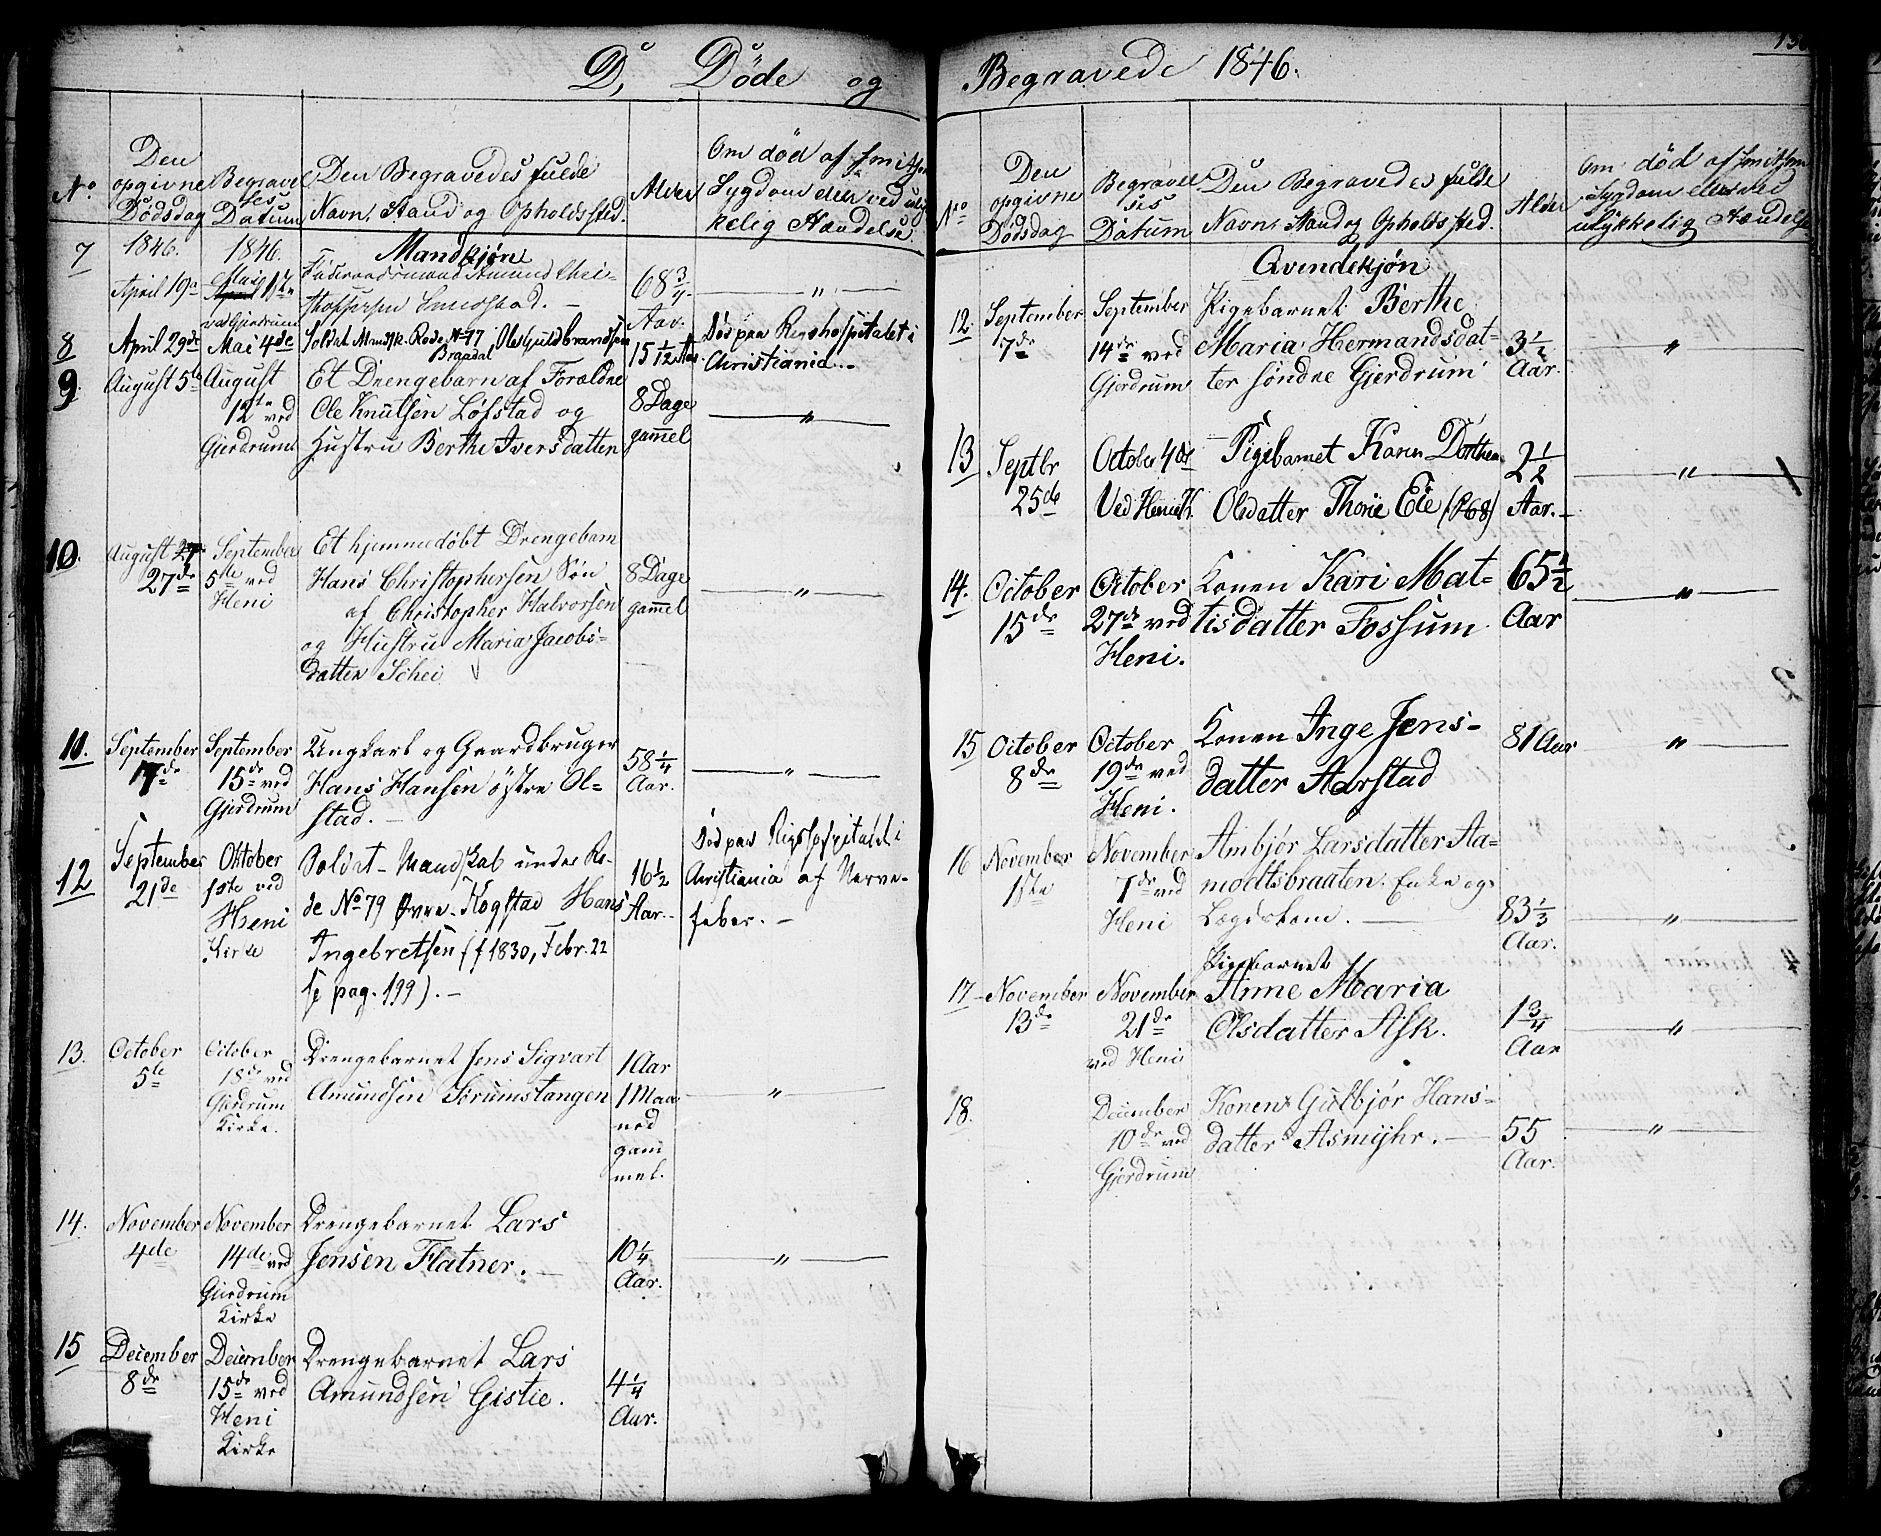 D, Døde og
Begravede 1846.
No
Den opgivne Dødsdag
Begravelses Datum
Den Begravedes fulde Navn, Stand og Opholdssted.
Alder
Om død af Smitsom Sygdom eller ved ulykkelig Hændelse.
1846.
1846.
Mandkjøn
7
April 19
17
Amund Chri-
stophersen
68 3/4 Aar.
— " —
ved Gjerdrum
8
April 29de
Mai 4de
Soldat Mandsk. Rode No 77 Ole Guldbrandsen
Brædal
15 1/12 Aar
Død paa Rigshospitalet i
Christiania. -
9.
August 5te
August
12te ved
Gjerdrum
Et Drengebarn af Forældre
Ole Knutsen Løfstad og
Hustru Berthe Iversdatten
8 Dage
gammel
— " —
10.
August
27de
September
5te ved
Heni
Et hjemmedøbt Drengebarn
Hans Christophersen Søn
af Christopher Halvorsen
og Hustru Maria Jacobs-
datten Schei
8 Dage
gammel
— " —
11.
September
September
15de ved
Gjerdrum
Ungkarl og Gaardbruger
Hans Hansen østre Ol-
stad. -
58 1/4
Aar.
— " —
12
September
21de
Oktober
1ste ved
Heni
Kirke
Soldat-Mandskab under Ro-
de No 79 Øvre-Kogstad Hans
Ingebretsen (f 1830, Febr. 22
se pag. 199). -
16 1/2
Aar. -
Død paa Rigshospitalet i
Christiania af Nerve-
feber. -
13.
October
5te
October
18de ved
Gjerdrum
Kirke.
Drengebarnet Jens Sigvart
Amundsen Sørumstangen
1 Aar
1 Maa-
ned
gam
mel.
— " —
14.
November
4de
November
14de ved
Gjerdrum
Kirke
Drengebarnet Lars
Jensen Flatner. -
10 1/4
Aar.
— " —
15
December
8de
December
15de ved
Heni
Kirke
Drengebarnet Lars
Amundsen Gistie.
4 1/4
Aar.
No
Den opgivne Dødsdag
Begravelses Datum
Den Begravedes fulde Navn, Stand og Opholdssted.
Alder
Om død af Smitsom Sygdom eller ulykkelig Hændelse
Qvindekjøn
12.
September
7de
September
14de ved
Gjerdrum
Pigebarnet Berthe
Maria Hermandsdat-
ter søndre Gjerdrum
3 1/2
Aar.
— " —
13
Septbr
25de
October 4de
Ved Heni K.
Pigebarnet Karen Dorthea
Olsdatter Thorie Eie (P 68)
2 1/2
Aar. -
— " —
14.
October
15de
October
27de ved
Heni.
Konen Kari Mat-
tisdatter Fossum
65 1/2
Aar
— " —
15
October
8de
October
19de ved
Heni.
Konen Inge Jens-
datter Aarstad
81 Aar
— " —
16
November
1ste
November
7de ved
Heni
Ambjør Larsdatter Aa-
modtsbraaten. Enke og
Lægdslem. —
83 1/3
Aar.
— " —
17
November
13de
November
21de
ved Heni
Pigebarnet
Anne Maria
Olsdatter Ask.
1 3/4
Aar
— " —
18.
December
10de ved
Gjerdrum
Konen Gulbjør Hans-
datter Asmyhr. —
55
Aar.
— " —